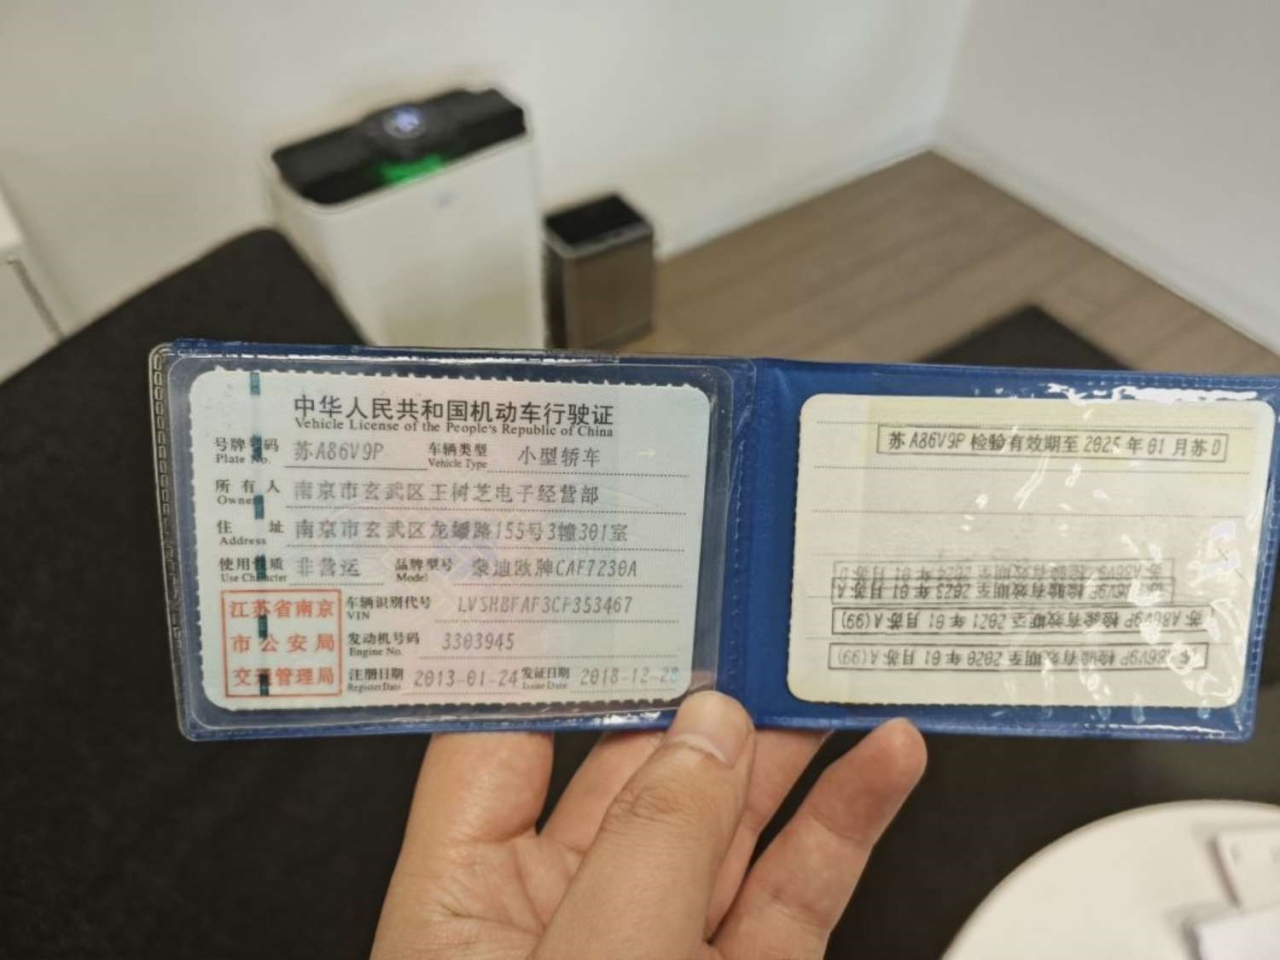 中华人民共和国机动车行驶证
Vehicle License of the People's Republic of China
号牌号码 苏A86V9P 车辆类型 小型轿车
Plate No. Vehicle Type
所有人 南京市玄武区王树芝电子经营部
Owner
住址 南京市玄武区龙蟠路155号3幢301室
Address
使用性质 非营运 品牌型号 蒙迪欧牌CAF7230A
Use Character Model
江苏省南京
市公安局
交通管理局
车辆识别代号 LVSHBFAF3CF353467
VIN
发动机号码 3303945
Engine No.
注册日期 2013-01-24 发证日期 2018-12-28
Register Date Issue Date
苏A86V9P 检验有效期至 2025年01月苏D
检验有效期至 2024年01月苏D
检验有效期至 2023年01月苏A
苏A86V9P 检验有效期至 2021年01月苏A(99)
苏A86V9P 检验有效期至 2020年01月苏A(99)